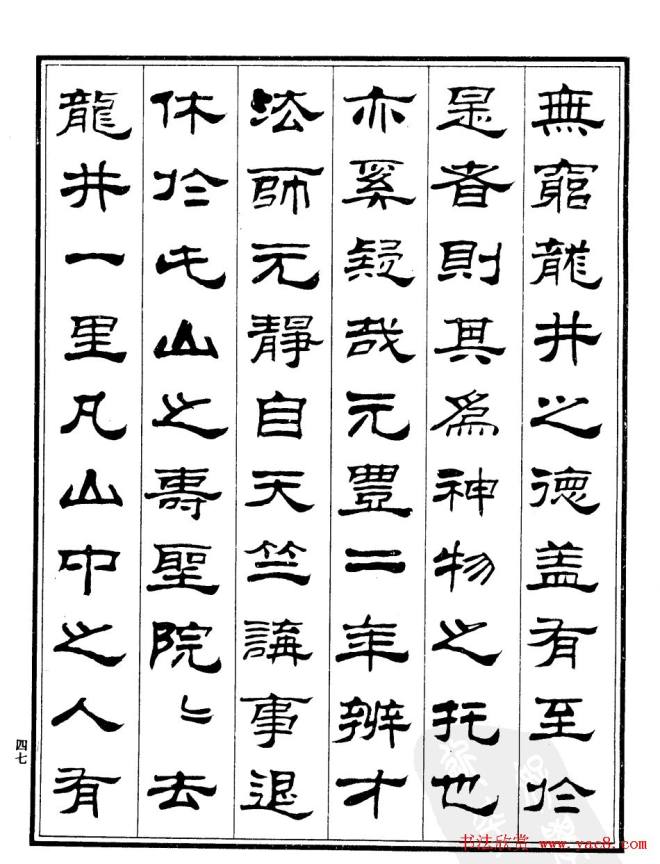 無窮龍井之德盖有至於
是者則其爲神物之托也
亦奚疑哉元豐二年辨才
法師元靜自天竺講事退
休於此山之壽聖院〻去
龍井一里凡山中之人有
四七
书法欣赏 www.yac8.com